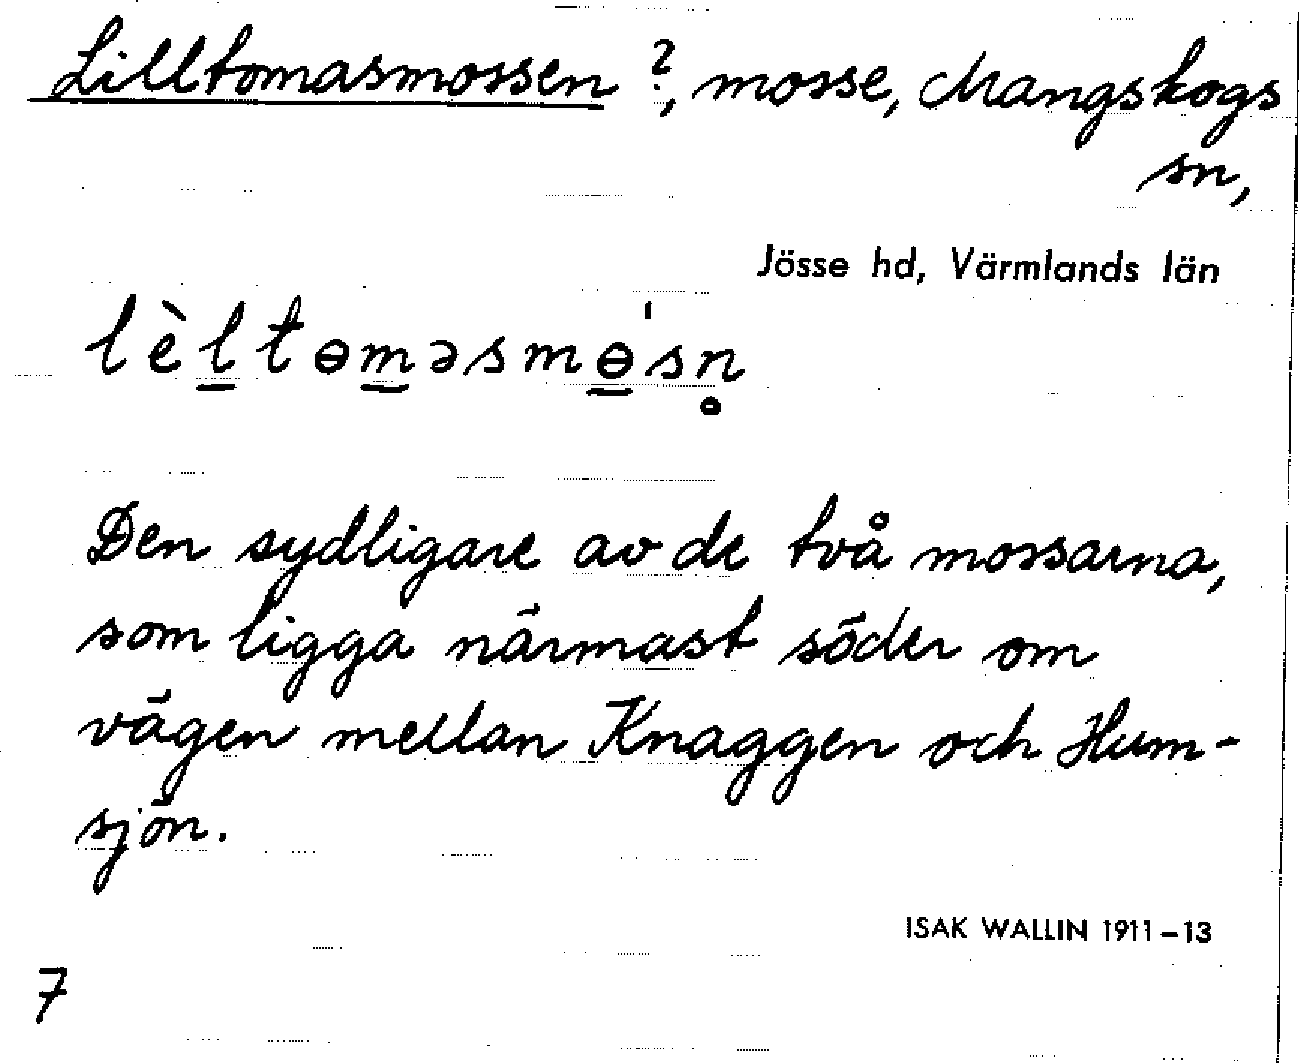 Lilltomasmossen ?, mosse, Mangskogs
sn,
Jösse hd, Värmlands län
lèl̲tɵm̲əsmɵ̲'sn̥
Den sydligare av de två mossarna,
som ligga närmast söder om
vägen mellan Knaggen och Hum-
sjön.
ISAK WALLIN 1911–13
7